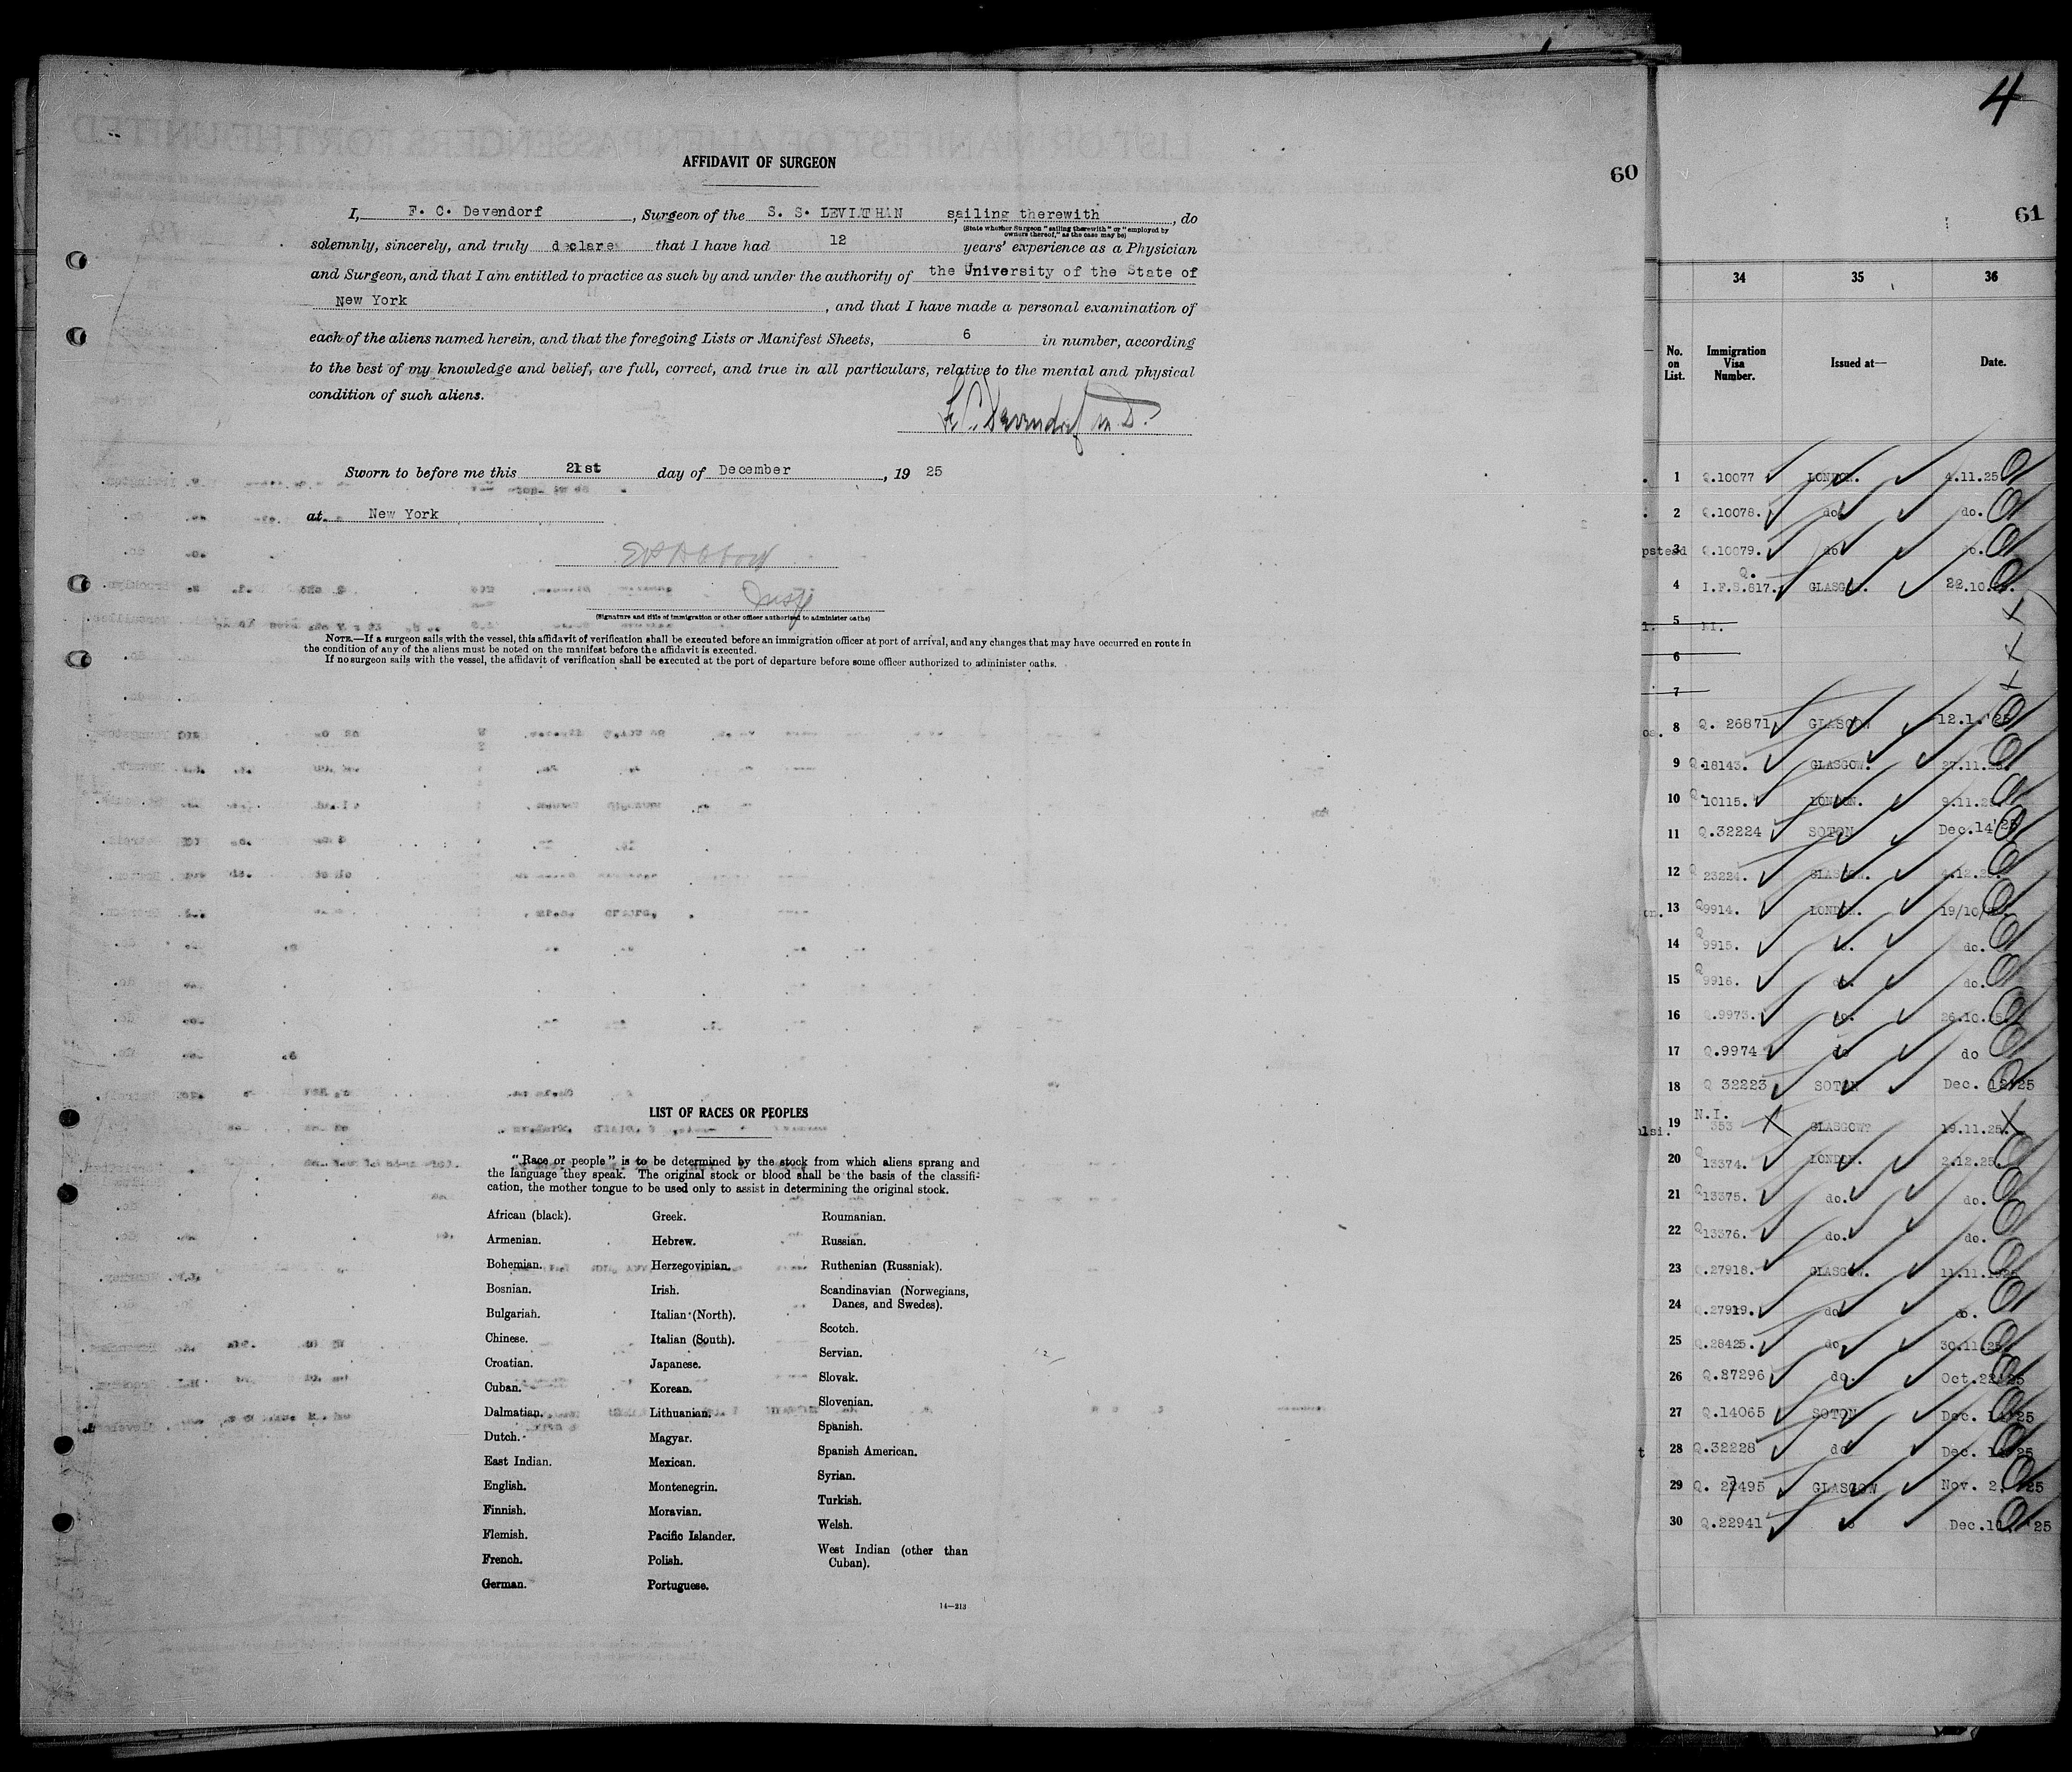 AFFIDAVIT OF SURGEON
60
I, F. C. Devendorf, Surgeon of the S. S. LEVIATHAN sailing therewith, do
(State whether Surgeon "sailing therewith" or "employed by
owners thereof," as the case may be)
solemnly, sincerely, and truly declare that I have had 12 years' experience as a Physician
and Surgeon, and that I am entitled to practice as such by and under the authority of the University of the State of
New York, and that I have made a personal examination of
each of the aliens named herein, and that the foregoing Lists or Manifest Sheets, 6 in number, according
to the best of my knowledge and belief, are full, correct, and true in all particulars, relative to the mental and physical
condition of such aliens.
F. C. Devendorf M. D.
Sworn to before me this 21st day of December, 19 25
at New York
Insp
(Signature and title of immigration or other officer authorized to administer oaths)
NOTE.—If a surgeon sails with the vessel, this affidavit of verification shall be executed before an immigration officer at port of arrival, and any changes that may have occurred en route in
the condition of any of the aliens must be noted on the manifest before the affidavit is executed.
If no surgeon sails with the vessel, the affidavit of verification shall be executed at the port of departure before some officer authorized to administer oaths.
LIST OF RACES OR PEOPLES
"Race or people" is to be determined by the stock from which aliens sprang and
the language they speak. The original stock or blood shall be the basis of the classifi-
cation, the mother tongue to be used only to assist in determining the original stock.
African (black).
Armenian.
Bohemian.
Bosnian.
Bulgarian.
Chinese.
Croatian.
Cuban.
Dalmatian.
Dutch.
East Indian.
English.
Finnish.
Flemish.
French.
German.
Greek.
Hebrew.
Herzegovinian.
Irish.
Italian (North).
Italian (South).
Japanese.
Korean.
Lithuanian.
Magyar.
Mexican.
Montenegrin.
Moravian.
Pacific Islander.
Polish.
Portuguese.
Roumanian.
Russian.
Ruthenian (Russniak).
Scandinavian (Norwegians,
Danes, and Swedes).
Scotch.
Servian.
Slovak.
Slovenian.
Spanish.
Spanish American.
Syrian.
Turkish.
Welsh.
West Indian (other than
Cuban).
14—213
4
61
34 35 36
No. on List. Immigration Visa Number. Issued at— Date.
1 Q.10077 LONDON. 4.11.25
2 Q.10078. do. do.
3 Q.10079. do. do.
4 Q. I.F.S.617. GLASGOW. 22.10.
5
6
7
8 Q. 26871 GLASGOW 12.1.'25
9 Q.18143. GLASGOW. 27.11.25.
10 Q.10115. LONDON. 9.11.25
11 Q.32224 SOTON Dec.14'25
12 Q 23224. GLASGOW. 4.12.25.
13 Q9914. LONDON. 19/10/
14 Q9915. do. do.
15 Q9916. do. do.
16 Q.9973. do. 26.10.25
17 Q.9974 do do
18 Q 32223 SOTON Dec. 12'25
19 N.I. 353 GLASGOW 19.11.25.
20 Q13374. LONDON. 2.12.25.
21 Q13375. do. do.
22 Q13376. do. do.
23 Q.27918. GLASGOW. 11.11.1925
24 Q.27919. do. do.
25 Q.28425. do. 30.11.25
26 Q.27296 do. Oct.22'25
27 Q.14065 SOTON Dec. 14'25
28 Q.32228 do Dec. 14'25
29 Q. 27495 GLASGOW Nov. 2, '25
30 Q.22941 do Dec.11. '25